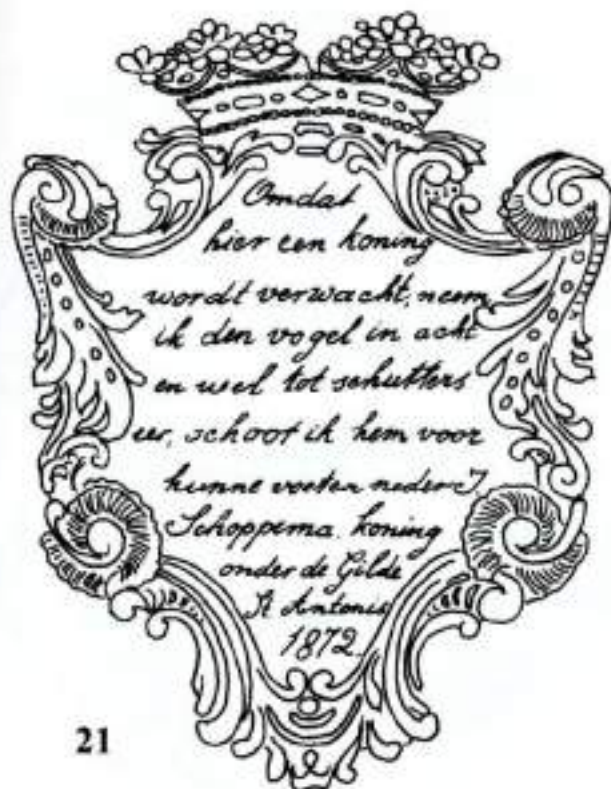 Omdat
hier een koning
wordt verwacht, neem
ik den vogel in acht
en wel tot schutters
eer, schoot ik hem voor
hunne voeten neder J.
Schoppema. koning
onder de Gilde
St Antonis
1872.
21